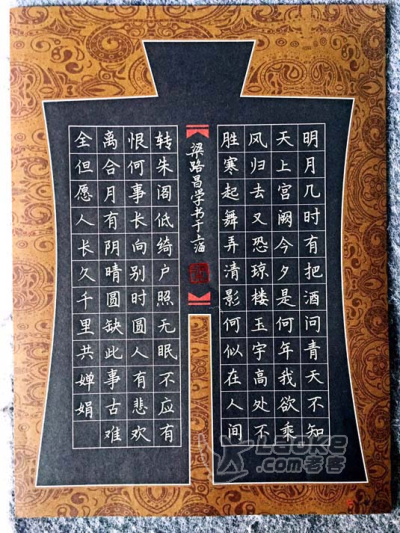 明月几时有把酒问青天不知
天上宫阙今夕是何年我欲乘
风归去又恐琼楼玉宇高处不
胜寒起舞弄清影何似在人间
梁路昌学书于上海
转朱阁低绮户照无眠不应有
恨何事长向别时圆人有悲欢
离合月有阴晴圆缺此事古难
全但愿人长久千里共婵娟
Laoke
.com老客